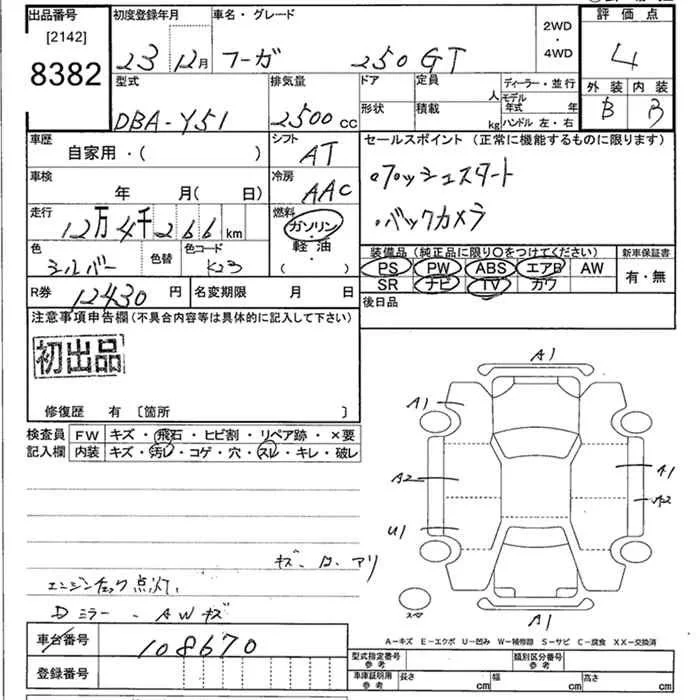 出品番号 初度登録年月 車名・グレード 2WD・4WD 評価点
[2142]
8382 23 12月 フーガ 250 GT 4
型式 排気量 ドア 定員 人 ディーラー・並行 外装 内装
DBA-Y51 2500cc 形状 積載 kg モデル年式 年 B B
ハンドル 左・右
車歴 シフト セールスポイント (正常に機能するものに限ります)
自家用・( ) AT
車検 冷房 ・プッシュスタート
年 月( 日) AAC
走行 燃料 ・バックカメラ
12万4千266km ガソリン・軽油・( )
色 色替 色コード 装備品 (純正品に限り〇をつけてください) 新車保証書
シルバー K23 PS PW ABS エアB AW 有・無
SR ナビ TV カワ
R券 12430円 名変期限 月 日 後日品
注意事項申告欄(不具合内容等は具体的に記入して下さい)
初出品
修復歴 有 [箇所 ]
検査員記入欄 FW キズ・飛石・ヒビ割・リペア跡・×要
内装 キズ・汚レ・コゲ・穴・スレ・キレ・破レ
A1
A1
A2 A1
A2
U1
スペア
A1
エンジンチェック点灯.
Dミラー・AWキズ
A-キズ E-エクボ U-凹み W-補修跡 S-サビ C-腐食 XX-交換済
車台番号 108670
型式指定番号 参考 類別区分番号 参考
登録番号 車庫証明用 参考 長さ cm 幅 cm 高さ cm